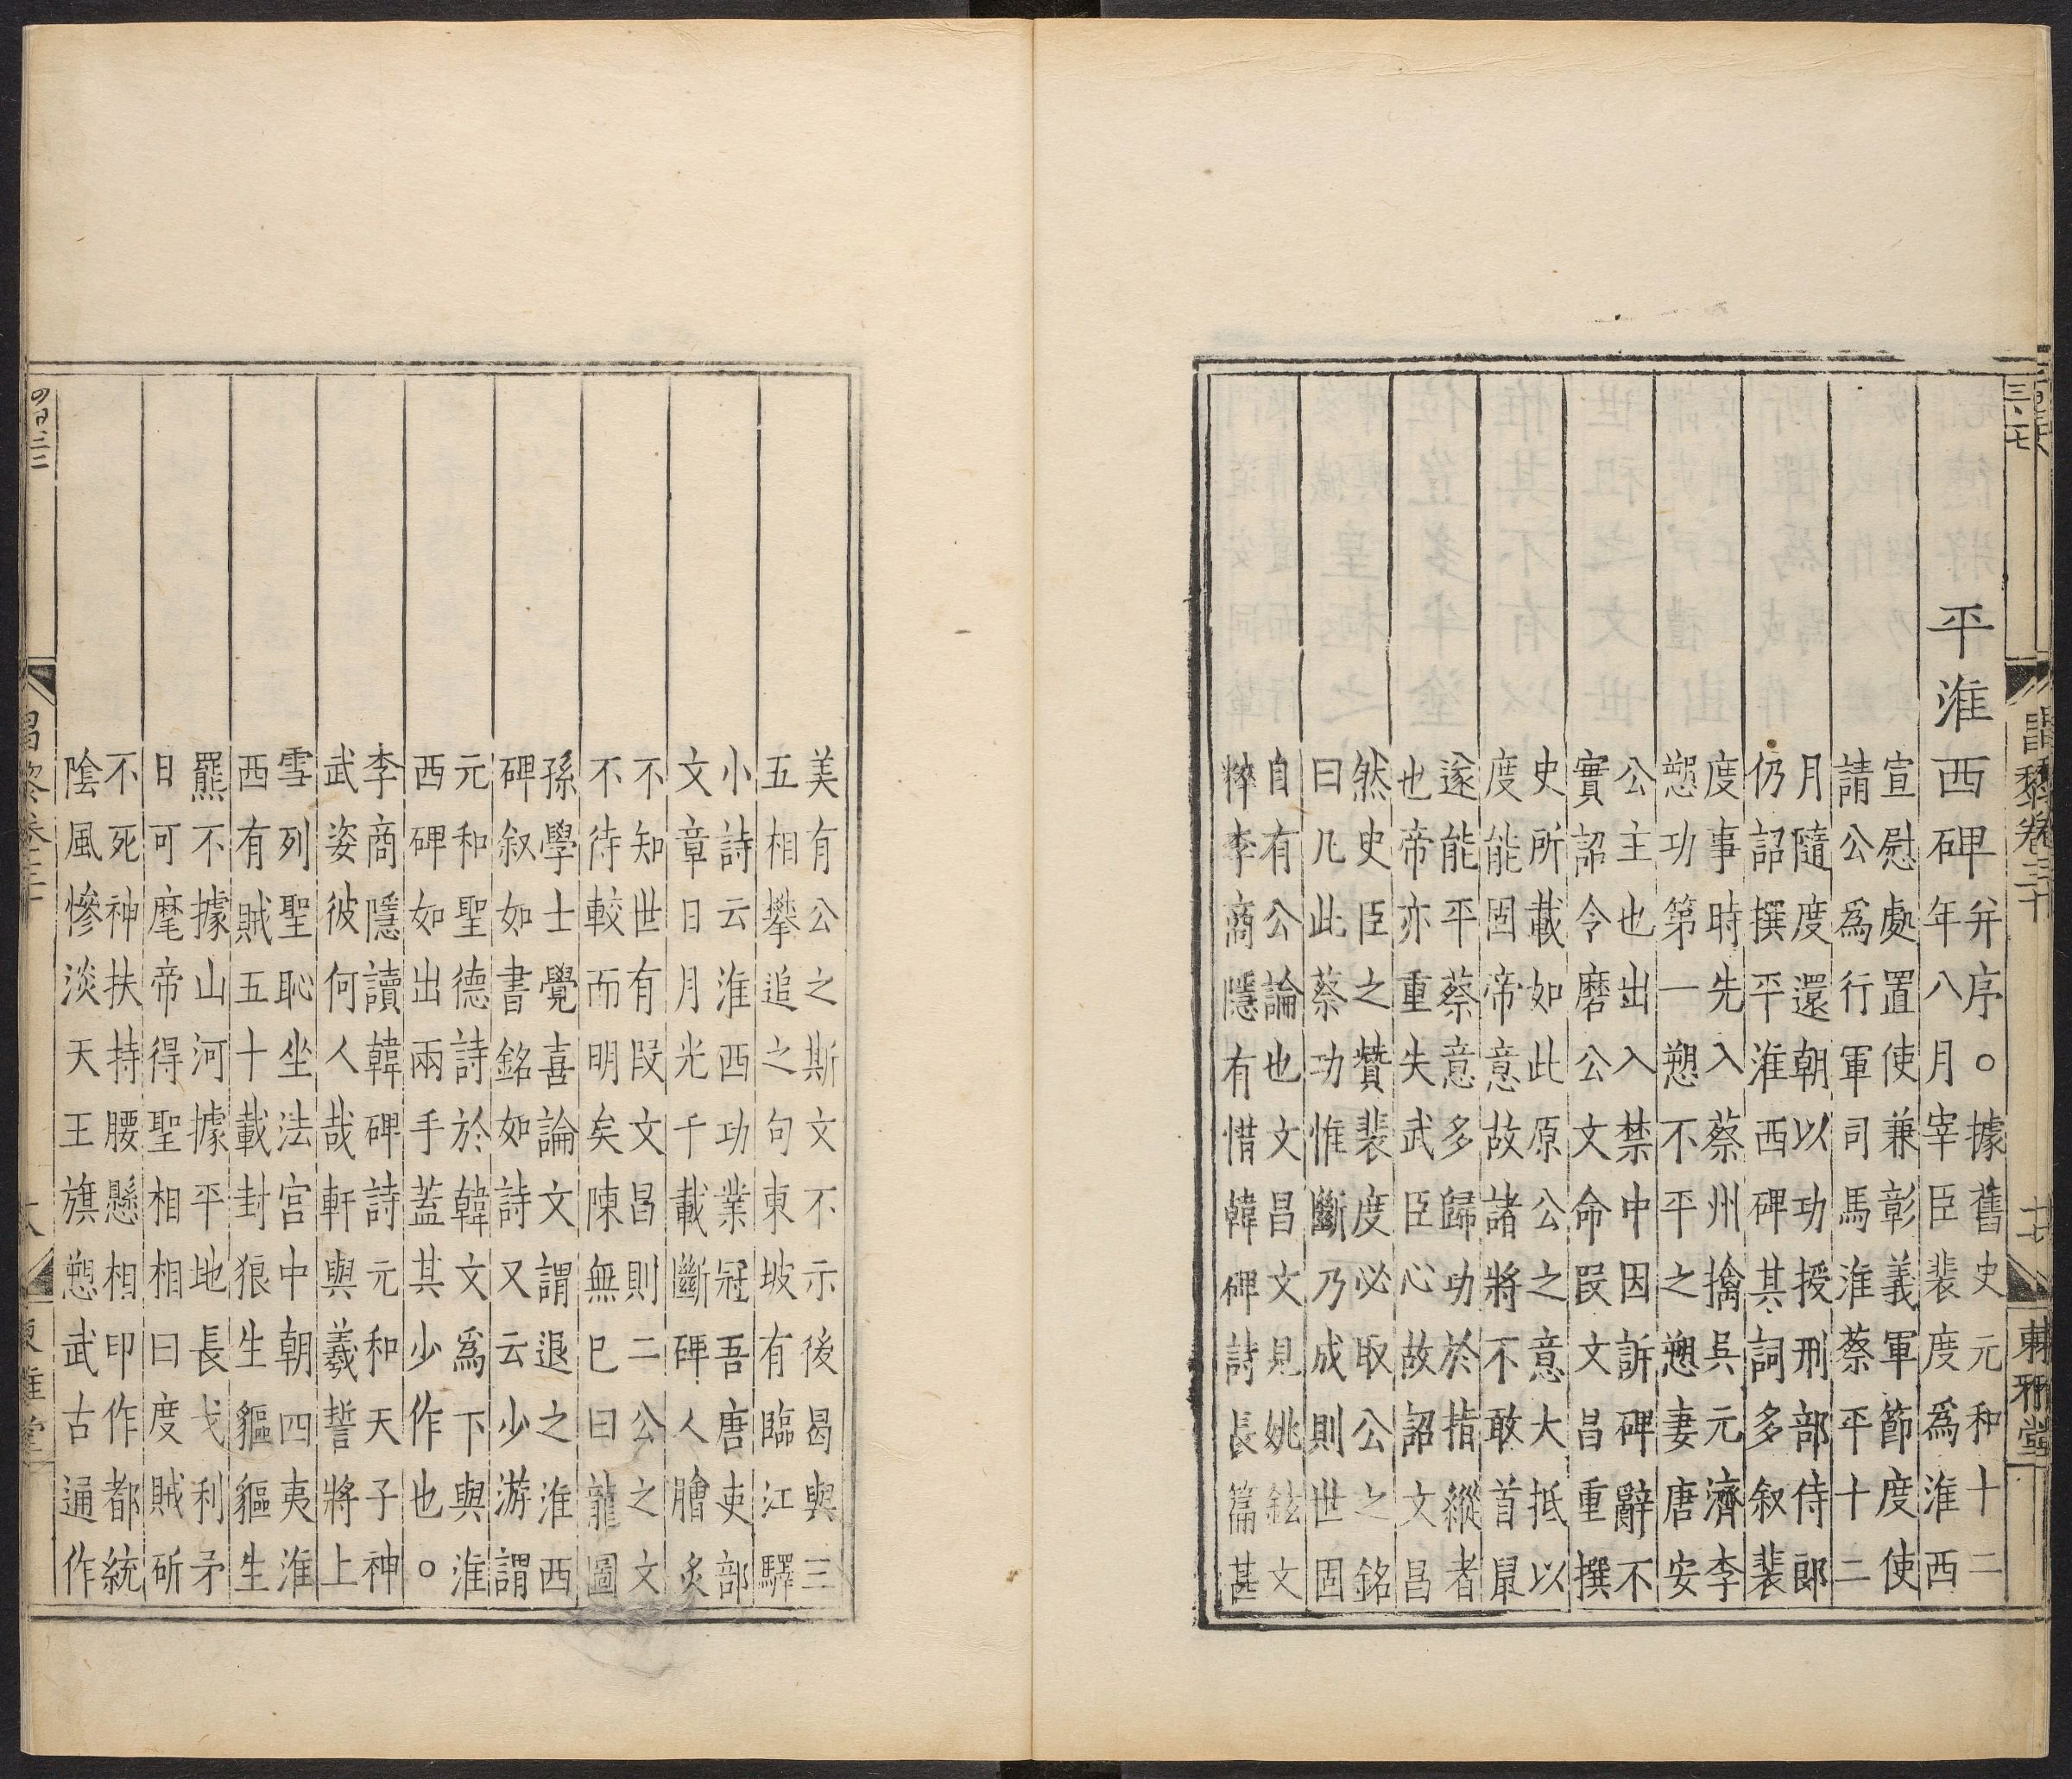 三七
昌黎卷三十
十七
東雅堂
平淮西碑
并序○據舊史元和十二
年八月宰臣裴度爲淮西
宣慰處置使兼彰義軍節度使
請公爲行軍司馬淮蔡平十二
月隨度還朝以功授刑部侍郎
仍詔撰平淮西碑其詞多叙裴
度事時先入蔡州擒吳元濟李
愬功第一愬不平之愬妻唐安
公主也出入禁中因訴碑辭不
實詔令磨公文命段文昌重撰
史所載如此原公之意大抵以
度能固帝意故諸將不敢首鼠
遂能平蔡意多歸功於指縱者
也帝亦重失武臣心故詔文昌
然史臣之贊裴度必取公之銘
曰凡此蔡功惟斷乃成則世固
自有公論也文昌文見姚鉉文
粹李商隱有惜韓碑詩長篇甚
美有公之斯文不示後曷與三
五相攀追之句東坡有臨江驛
小詩云淮西功業冠吾唐吏部
文章日月光千載斷碑人膾炙
不知世有段文昌則二公之文
不待較而明矣陳無己曰龍圖
孫學士覺喜論文謂退之淮西
碑叙如書銘如詩又云少游謂
元和聖德詩於韓文爲下與淮
西碑如出兩手蓋其少作也○
李商隱讀韓碑詩元和天子神
武姿彼何人哉軒與羲誓將上
雪列聖恥坐法宮中朝四夷淮
西有賊五十載封狼生貙貙生
羆不據山河據平地長戈利矛
日可麾帝得聖相相曰度賊斫
不死神扶持腰懸相印作都統
陰風慘淡天王旗愬武古通作
昌黎卷三十
東雅堂